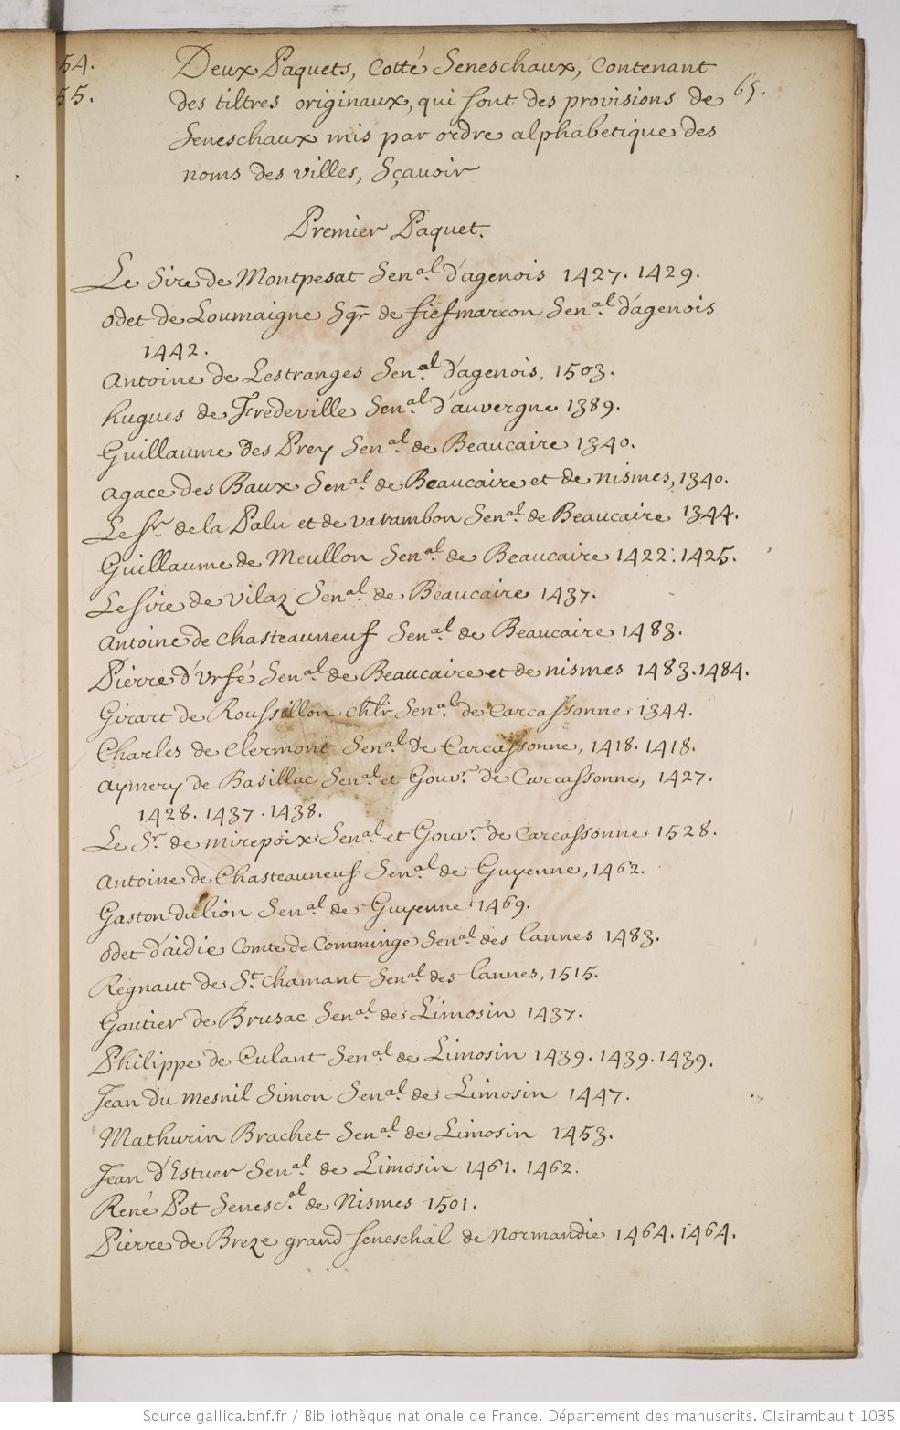 54. Deux Paquets, cotté Seneschaux, contenant
55. des tiltres originaux, qui sont des provisions de 65.
Seneschaux mis par ordre alphabetique des
noms des villes, Sçavoir
Premier Paquet.
Le Sire de Montpesat Sen.al d'agenois 1427. 1429.
Odet de Loumaigne Sgr de fiefmarcon Sen.al d'agenois
1442.
Antoine de Lestranges Sen.al d'agenois, 1503.
hugues de Fredeville Sen.al d'auvergne 1389.
Guillaume des Prey Sen.al de Beaucaire 1340.
Agace des Baux Sen.al de Beaucaire et de nismes, 1340.
Le Sr. de la Palu et de varambon Sen.al de Beaucaire 1344.
Guillaume de Meullon Sen.al de Beaucaire 1422. 1425.
Le sire de Vilaz Sen.al de Beaucaire 1437.
Antoine de chasteauneuf Sen.al de Beaucaire 1483.
Pierre d'Urfé Sen.al de Beaucaire et de nismes 1483. 1484.
Girart de Roussillon chlr Sen.al de Carcassonne 1344.
Charles de Clermont Sen.al de Carcassonne, 1418. 1418.
Aymery de Basillac Sen.al et Gouvr. de Carcassonne, 1427.
1428. 1437. 1438.
Le Sr. de mirepoix Sen.al et Gouvr. de Carcassonne 1528.
Antoine de Chasteauneuf Sen.al de Guyenne, 1462.
Gaston du lion Sen.al de Guyenne 1469.
Odet d'aidie Comte de Comminge Sen.al des lannes 1483.
Regnaut de St. chamant Sen.al des lannes, 1515.
Gautier de Brusac Sen.al de Limosin 1437.
Philippe de Culant Sen.al de Limosin 1439. 1439. 1439.
Jean du mesnil Simon Sen.al de Limosin 1447.
Mathurin Brachet Sen.al de Limosin 1453.
Jean d'Estuer Sen.al de Limosin 1461. 1462.
René Pot Senesc.al de Nismes 1501.
Pierre de Breze grand seneschal de Normandie 1464. 1464.
Source gallica.bnf.fr / Bibliothèque nationale de France. Département des manuscrits. Clairambault 1035